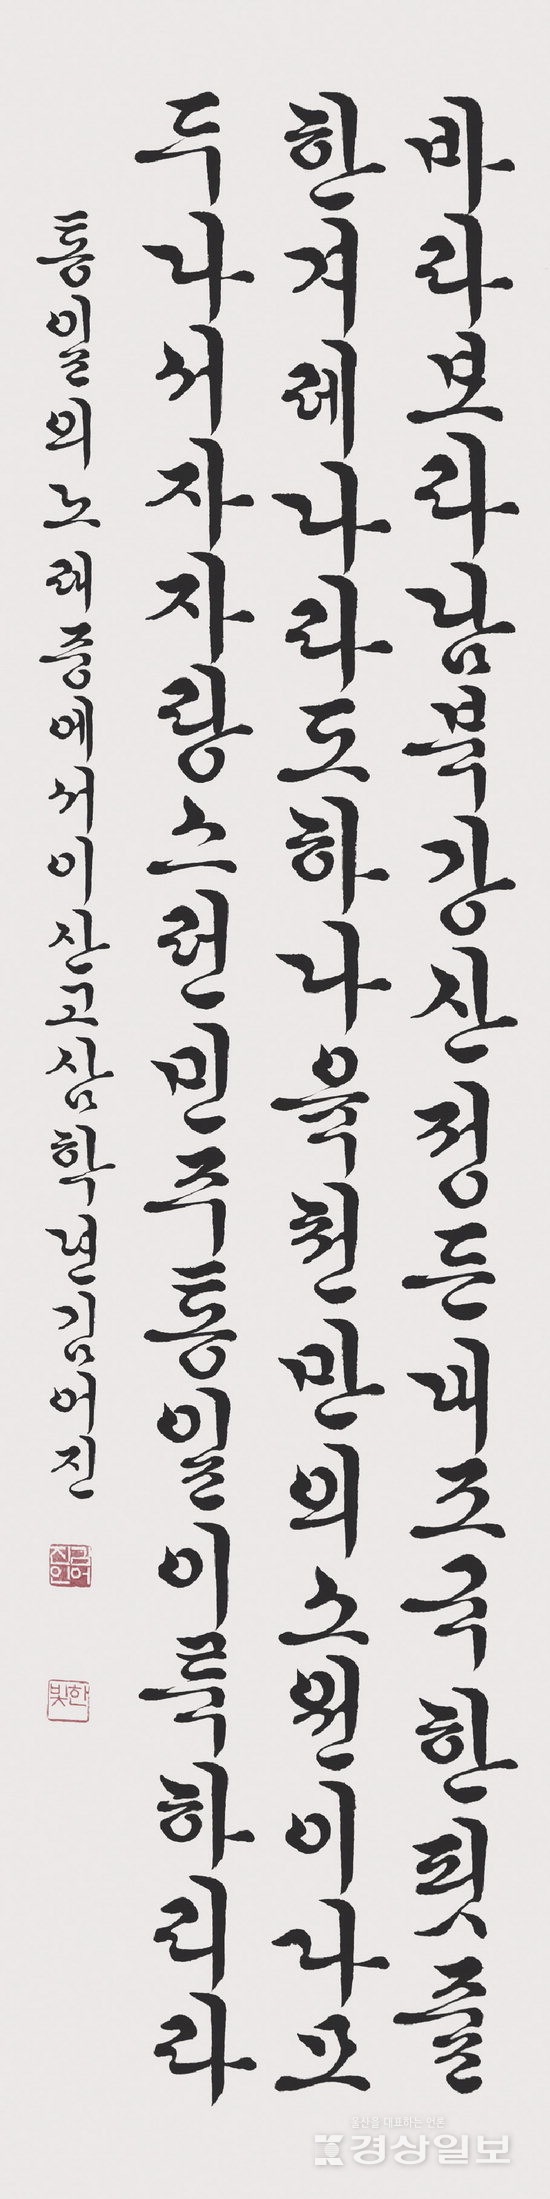 바라보라남북강산정든내조국한핏줄
한겨레나라도하나육천만의소원이다모
두나서자자랑스런민주통일이룩하리라
통일의노래중에서이산고삼학년김어진
김어진인
한빛
울산을 대표하는 언론
경상일보